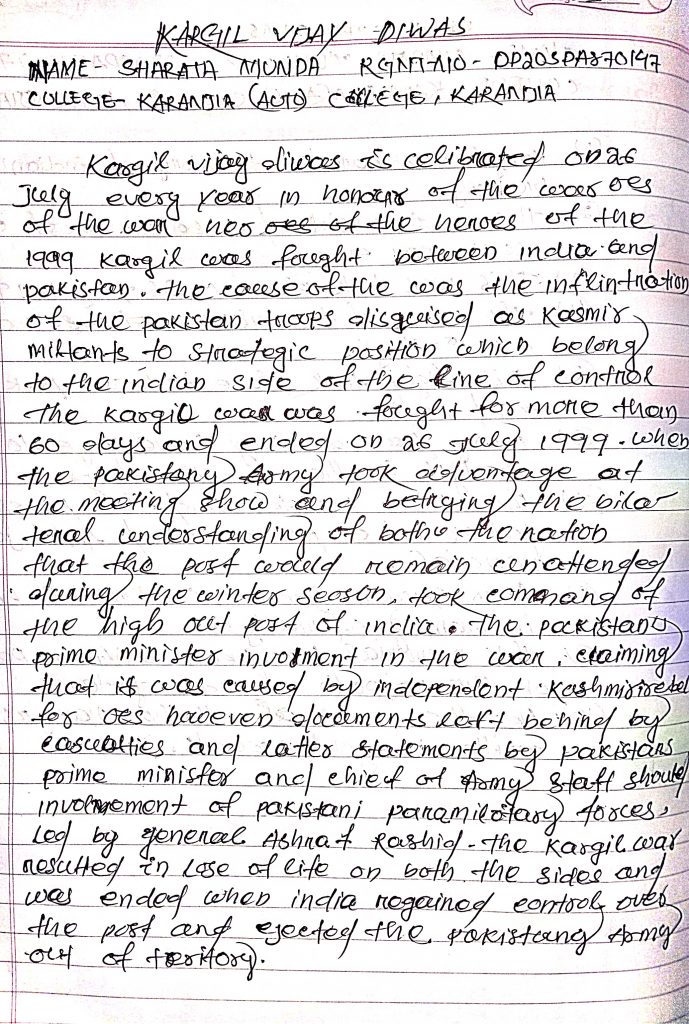 KARGIL VIJAY DIWAS
NAME- SHARATA MUNDA RGNT-NO- DP20SPA870147
COLLEGE- KARANJIA (AUTO) COLLEGE, KARANJIA
Kargil vijay diwas is celibrated on 26
July every year in honour of the war oes
of the war heo oes of the heroes of the
1999 Kargil was fought between india and
pakistan. the cause of the was the inflintration
of the pakistan troops disguised as Kasmir
militants to strategic position which belong
to the indian side of the line of control
The Kargil war was fought for more than
60 days and ended on 26 July 1999. when
the pakistany Army took advantage at
the meeting show and betriging the bila
teral understanding of bothe the nation
that the post would remain unattended
during the winter season, took command of
the high out post of india. The pakistan
prime minister involment in the war, claiming
that it was caused by independent Kashmirirebel
for oes however documents left behind by
casualties and latter statements by pakistans
prime minister and chief of Army staff should
involmement of pakistani paramilotary forces,
led by general Ashraf Rashid - the Kargil war
resulted in lose of life on both the sides and
was ended when india regained control over
the post and ejected the pakistang Army
out of territory.